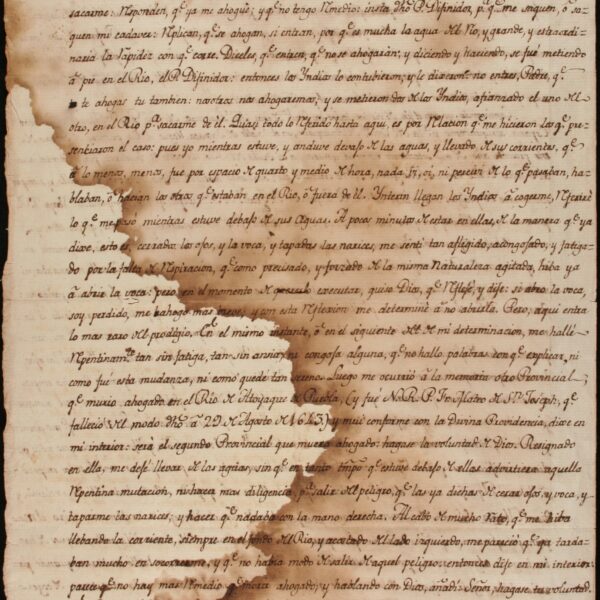 sacarme: Responden, q.e ya me ahoguè; y q.e no tengo Remedio: insta dho P. Difinidor, p.a q.e me saquen, ò sa-
quen mi cadaver: Replican, q.e se ahogan, si entran, por q.e es mucha la agua del Rio, y grande, y extraordi-
naria la rapidez con q.e corre. Diceles, q.e entren, q.e no se ahogaràn; y diciendo y haciendo, se fuè metiendo
à piè en el Rio, el P. Difinidor: entonces los Indios lo contubieron; y le dixeron: no entres, Padre, q.e
te ahogas tu tambien: nosotros nos ahogaremos; y se metieron dos de los Indios, afianzado el uno del
otro, en el Rio p.a sacarme de èl. Quasi todo lo Referido hasta aqui, es por Relacion q.e me hicieron los q.e pre-
senciaron el caso: pues yo mientras estuve, y anduve debaxo de las aguas, y llevado de sus corrientes, q.e
à lo menos, menos, fue por espacio de quarto y medio de hora, nada vì, oì, ni percivì de lo q.e pasaban, ha-
blaban, ò hacian los otros q.e estaban en el Rio, ò fuera de èl. Ynterin llegan los Yndios à cogerme, Referirè
lo q.e me pasò mientras estuve debaxo de sus Aguas. A pocos minutos de estar en ellas, de la manera q.e ya
dixe, esto es, cerrado los ojos, y la voca, y tapadas las narices, me sentì tan afligido, acongojado, y fatiga-
do por la falta de Respiracion, q.e como precisado, y forzado de la misma Naturaleza agitada, hiba ya
à abrir la voca: pero en el momento de quererlo executar, quiso Dios, q.e Reflexè, y dixe: si abro la voca,
soy perdido, me ahogo mas presto; y con esta Reflexion me determinè à no abrirla. Pero, aqui entra
lo mas raro del prodigio. En el mismo instante, ò en el siguiente al de mi determinacion, me hallè
Repentinam.te tan sin fatiga, tan sin ansia, ni congoja alguna, q.e no hallo palabras con q.e explicar, ni
como fuè esta mudanza, ni como quedè tan sereno. Luego me ocurriò à la memoria otro Provincial,
q.e muriò ahogado en el Rio de Atoyaque de Puebla, (y fue N. R. P. Fr. Matheo de S.n Joseph, q.e
falleciò del modo dho à 29 de Agosto de 1643) y mui conforme con la Divina Providencia, dixe en
mi interior: serà el segundo Provincial que muera ahogado: hagase la voluntad de Dios. Resignado
en ella, me dexè llevar de las aguas, sin q.e en tanto tmpo q.e estuve debaxo de ellas advirtiera aquella
Repentina mutacion, ni hacer mas diligencia, p.a salir del peligro, q.e las ya dichas de cerrar ojos, y voca, y
taparme las narices; y hacer q.e nadaba con la mano derecha. Al cabo de mucho rato, q.e me hiba
llebando la corriente, siempre en el fondo del Rio, y acostado del lado izquierdo, me pareciò q.e ya tarda-
ban mucho en socorrerme, y q.e no habia modo de salir de aquel peligro: entonces dixe en mi interior:
parece q.e no hay mas Remedio q.e morir ahogado; y hablando con Dios, añadì: Señor, hagase tu voluntad.